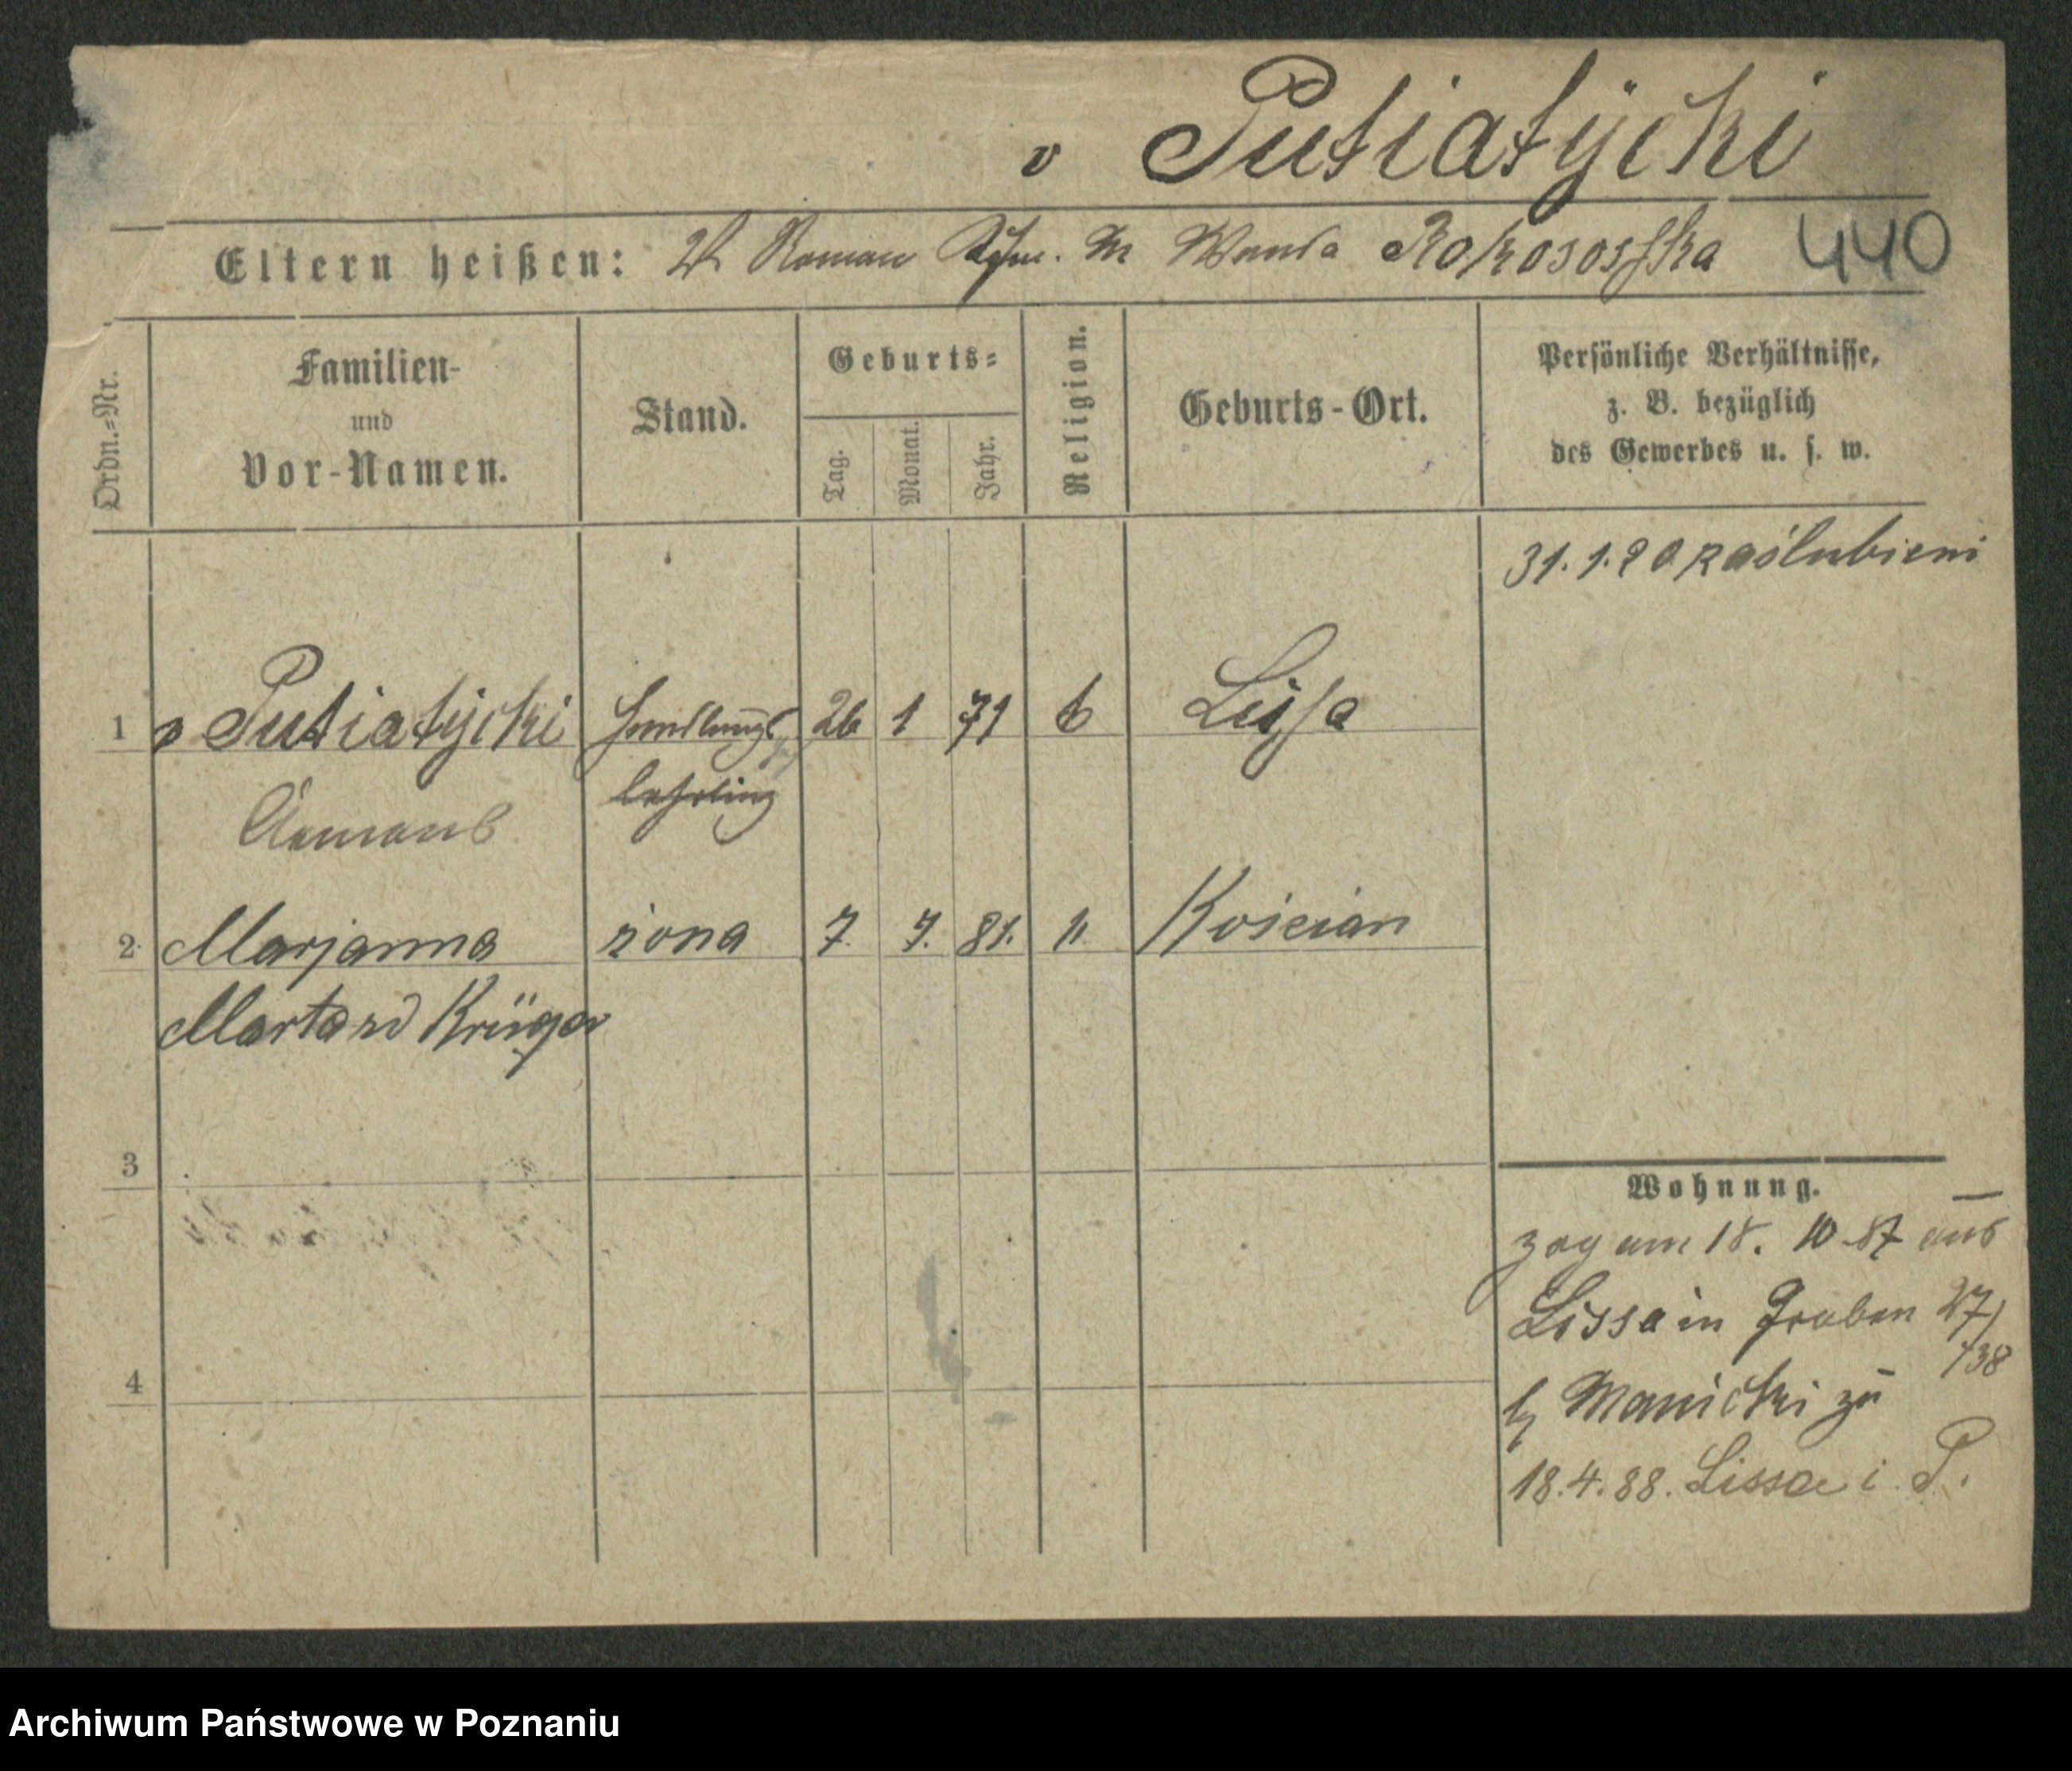 v Putiatycki
Eltern heißen: V. Roman Kfm. M Wanda Rokososska 440
Ordn.-Nr.
Familien-
und
Vor-Namen.
Stand.
Geburts-
Tag.
Monat.
Jahr.
Religion.
Geburts-Ort.
Persönliche Verhältnisse,
z. B. bezüglich
des Gewerbes u. s. w.
31.1.20 zaślubieni
1 v Putiatycki Handlungs 26 1 71 k Lissa
lehrling
2 Marjanna żona 7. 7. 81. " Kościan
Marta zd Krüger
3
4
Wohnung.
zog am 18. 10 87 aus
Lissa in Graben 27/
/38
bz Manicki zu
18.4.88. Lissa i. P.
Archiwum Państwowe w Poznaniu